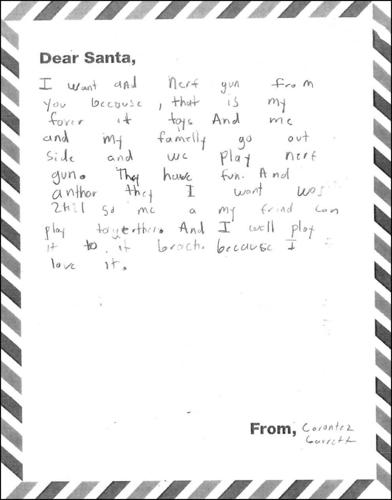 Dear Santa,
I want and Nerf gun from
you becouse, that is my
fover it toys And me
and my familly go out
side and we play nerf
gun. They have fun. And
anthor they I want was
so me a my frind can
play togerther. And I well play
it to it because I
love it.
From, Corontez
Garrett